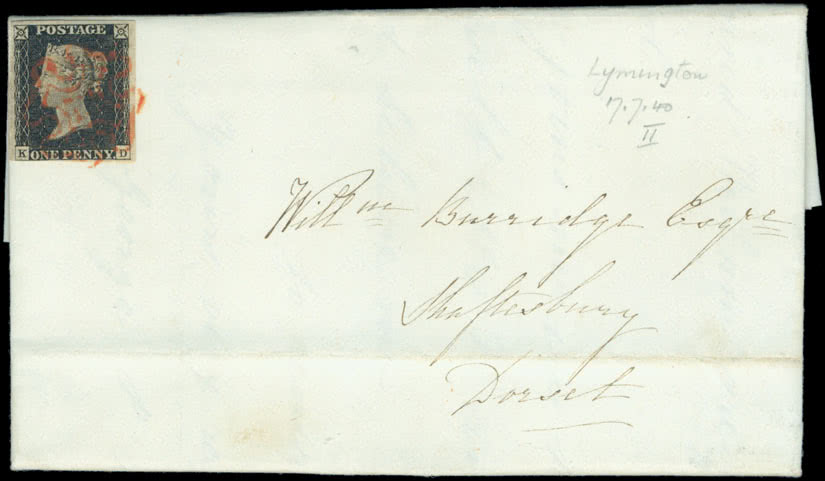 POSTAGE
K ONE PENNY. D
Lymington
17.7.40
II
Willm Burridge Esqre
Shaftesbury
Dorset